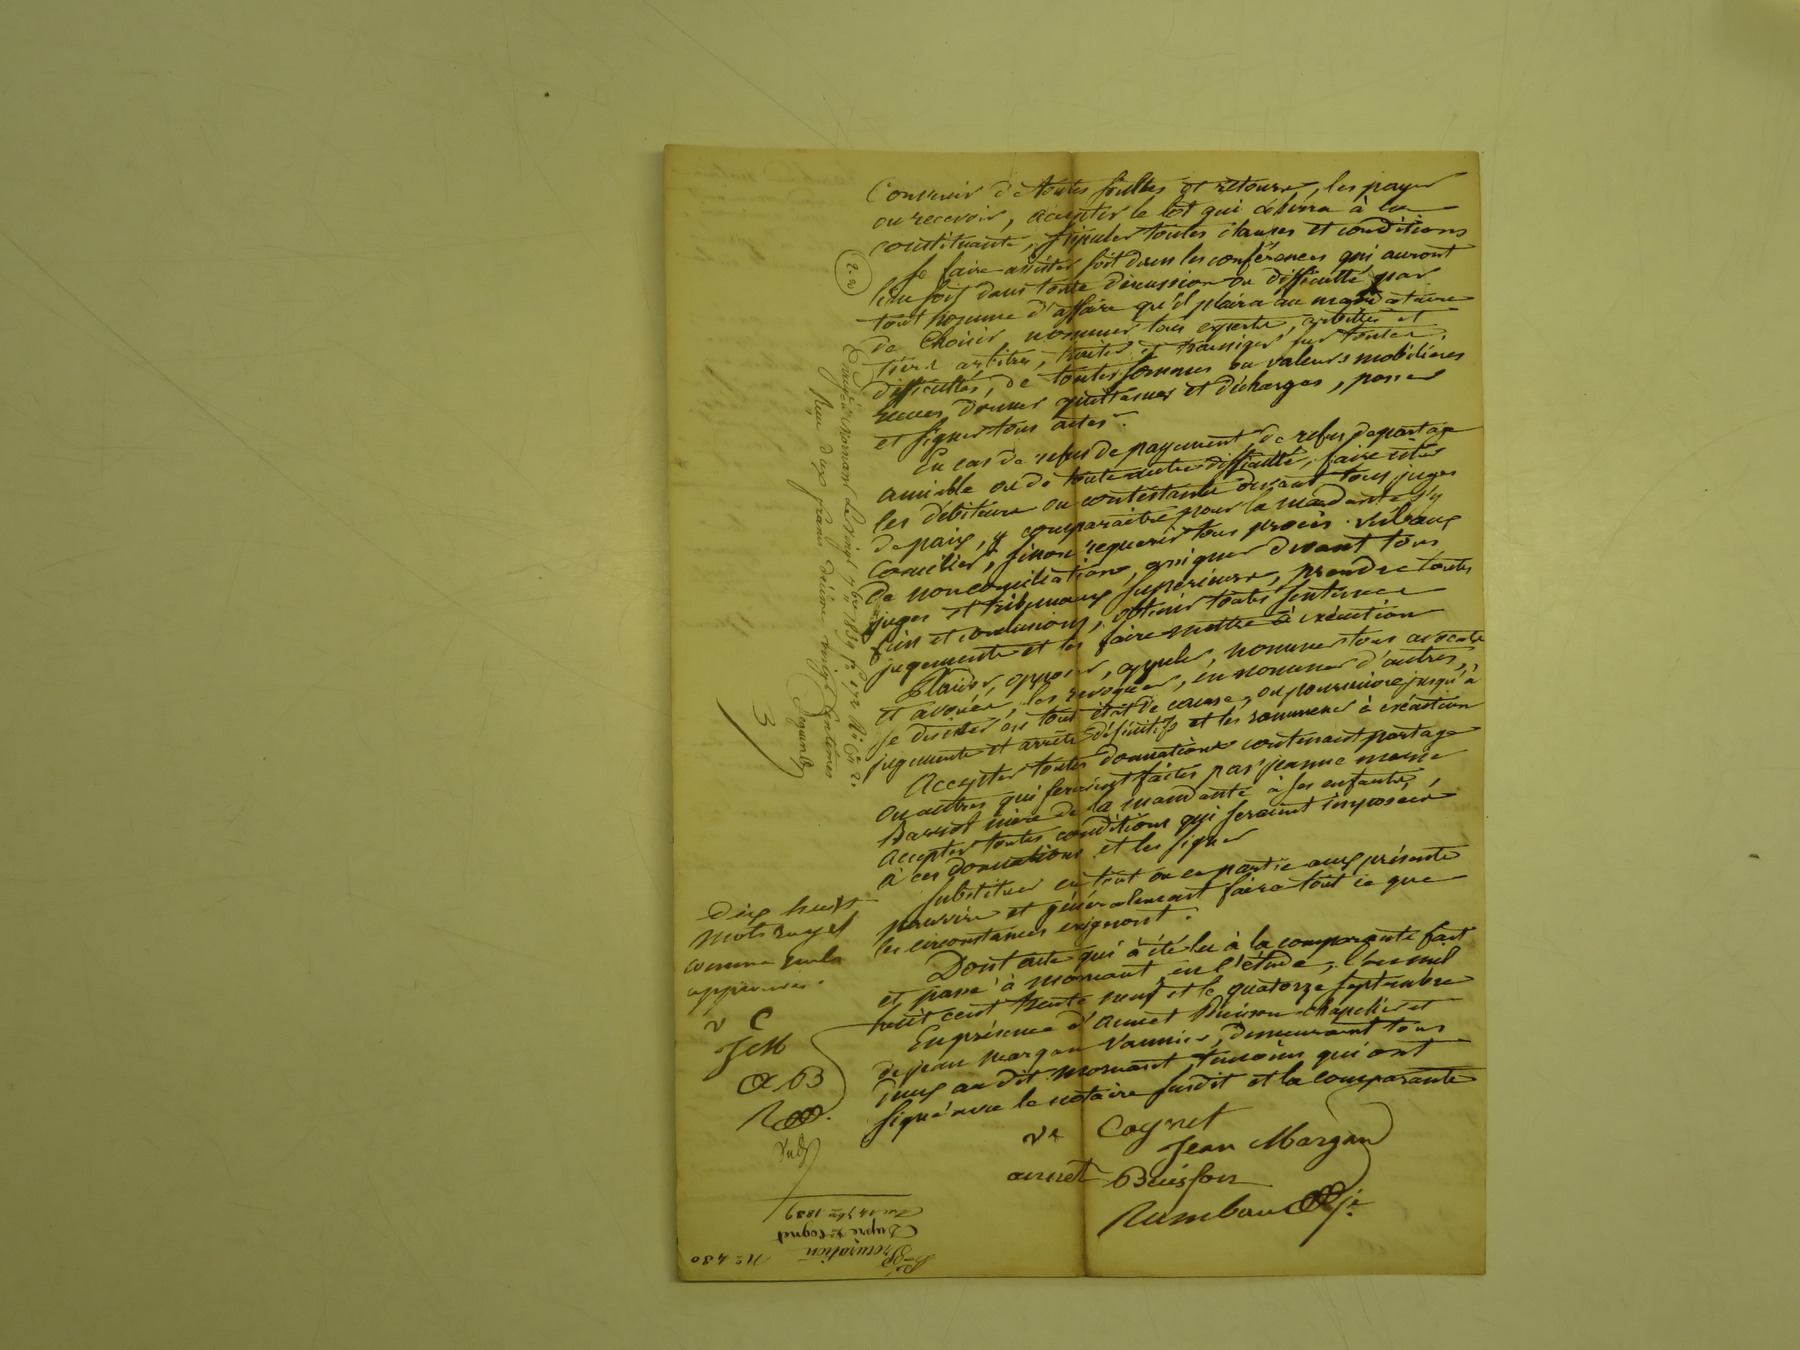 Convenir de toutes soultes et retours, les payer
ou recevoir, accepter le lot qui écherra à la
constituante, stipuler toutes clauses et conditions
Se faire assister soit dans les conférences qui auront
lieu soit dans toute discussion ou difficulté par
tout homme d'affaire qu'il plaira au mandataire
de choisir nommer tous experts, arbitres et
tiers arbitres, traiter et transiger sur toutes
difficultés, de toutes sommes ou valeurs mobilières
reçues donner quittances et décharges, passer
et signer tous actes.
En cas de refus de payement, de refus de partage
amiable ou de toute autre difficulté, faire citer
les débiteurs ou contestants devant tous juges
de paix, y comparaitre pour la mandante s'y
concilier, sinon requerir tous procès-verbaux
de non conciliation, assigner devant tous
juges et tribunaux supérieurs, prendre toutes
fins et conclusions, obtenir toutes sentences
jugements et les faire mettre à exécution
Plaider, opposer, appeler, nommer tous avocats
et avoués, les revoquer, en nommer d'autres,
se desister en tout état de cause, ou poursuivre jusqu'à
jugements et arrêts définitifs et les ramener à exécution
Accepter toutes donnations contenant partage
ou autres qui seraient faites par jeanne marie
Barriot mère de la mandante à ses enfants,
accepter toutes conditions qui seraient imposées
à ces donnations et les signer
Substituer en tout ou en partie aux présents
pouvoirs et généralement faire tout ce que
les circonstances exigeront.
Dont acte qui a été lu à la comparante fait
et passé à mornant en l'étude, l'an mil
huit cent trente neuf et le quatorze septembre
En présence d'annet Buisson chapelier et
de jean margan Vannier, demeurant tous
deux au dit mornant, temoins qui ont
signé avec le notaire susdit et la comparante
ve Cognet
Jean Margan
annet Buisson
Rambaud
2 r°
Enrgé à Mornant le vingt 7bre 1839 f° 172 V° C 2.
Reçu deux francs décime vingt centimes
3
Dix huit
mots rayés
comme nuls
approuvés.
v C
JM
A B
R
N° 430
Procuration
Dupré Ve Cognet
Du 14 7bre 1839